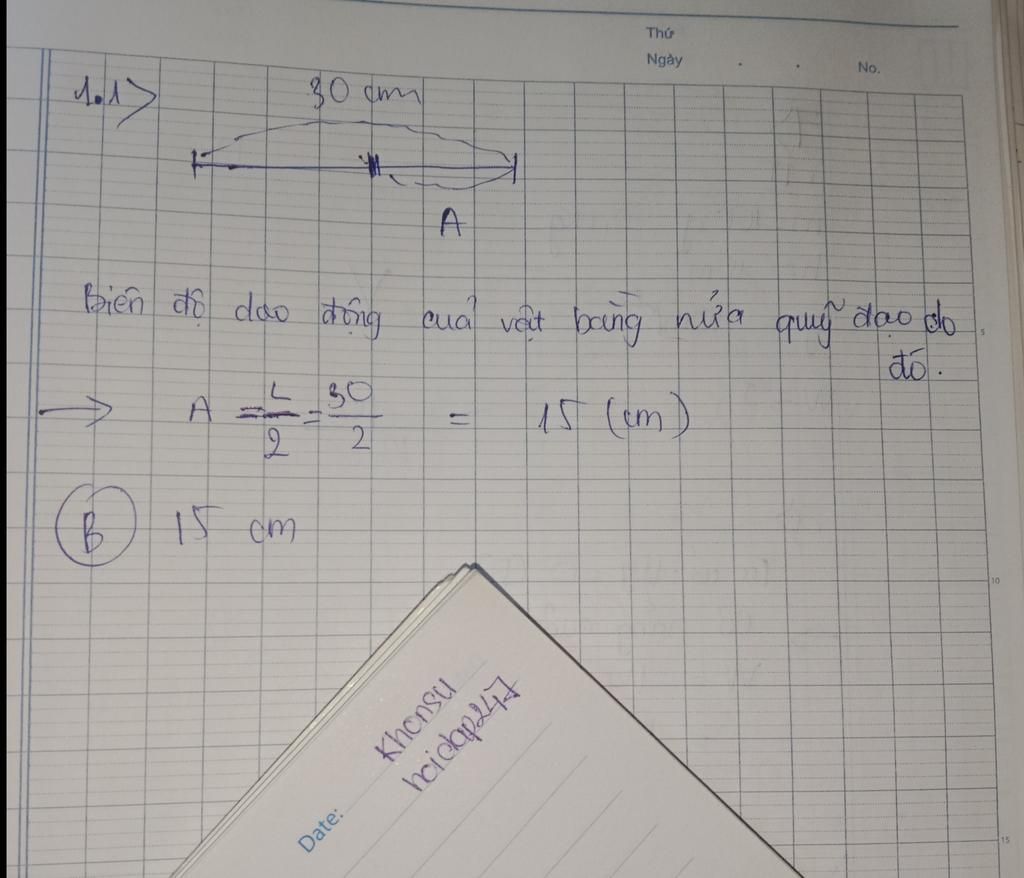 Thứ
Ngày . . No.
1.1> 30 cm
A
Biên độ dao động cuả vật bằng nửa quỹ đạo do
đó.
→ A = L/2 = 30/2 = 15 (cm)
B 15 cm
5
10
15
Khonsu
hoidap247
Date: